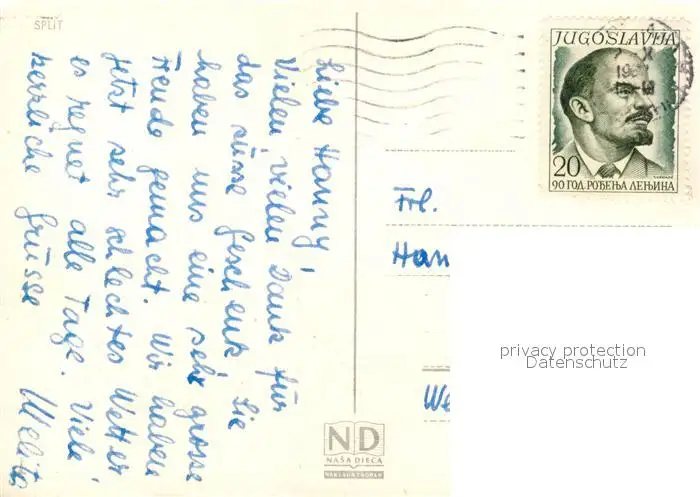 SPLIT
Liebe Hanny!
Vielen, vielen Dank für
das süsse Geschenk. Sie
haben uns eine sehr grosse
Freude gemacht. Wir haben
jetzt sehr schlechtes Wetter
es regnet alle Tage. Viele
herzliche Grüsse
Melita
JUGOSLAVIJA
20
90 ГОД. РОЂЕЊА ЛЕЊИНА
Frl.
Han
We
privacy protection
Datenschutz
ND
NAŠA DJECA